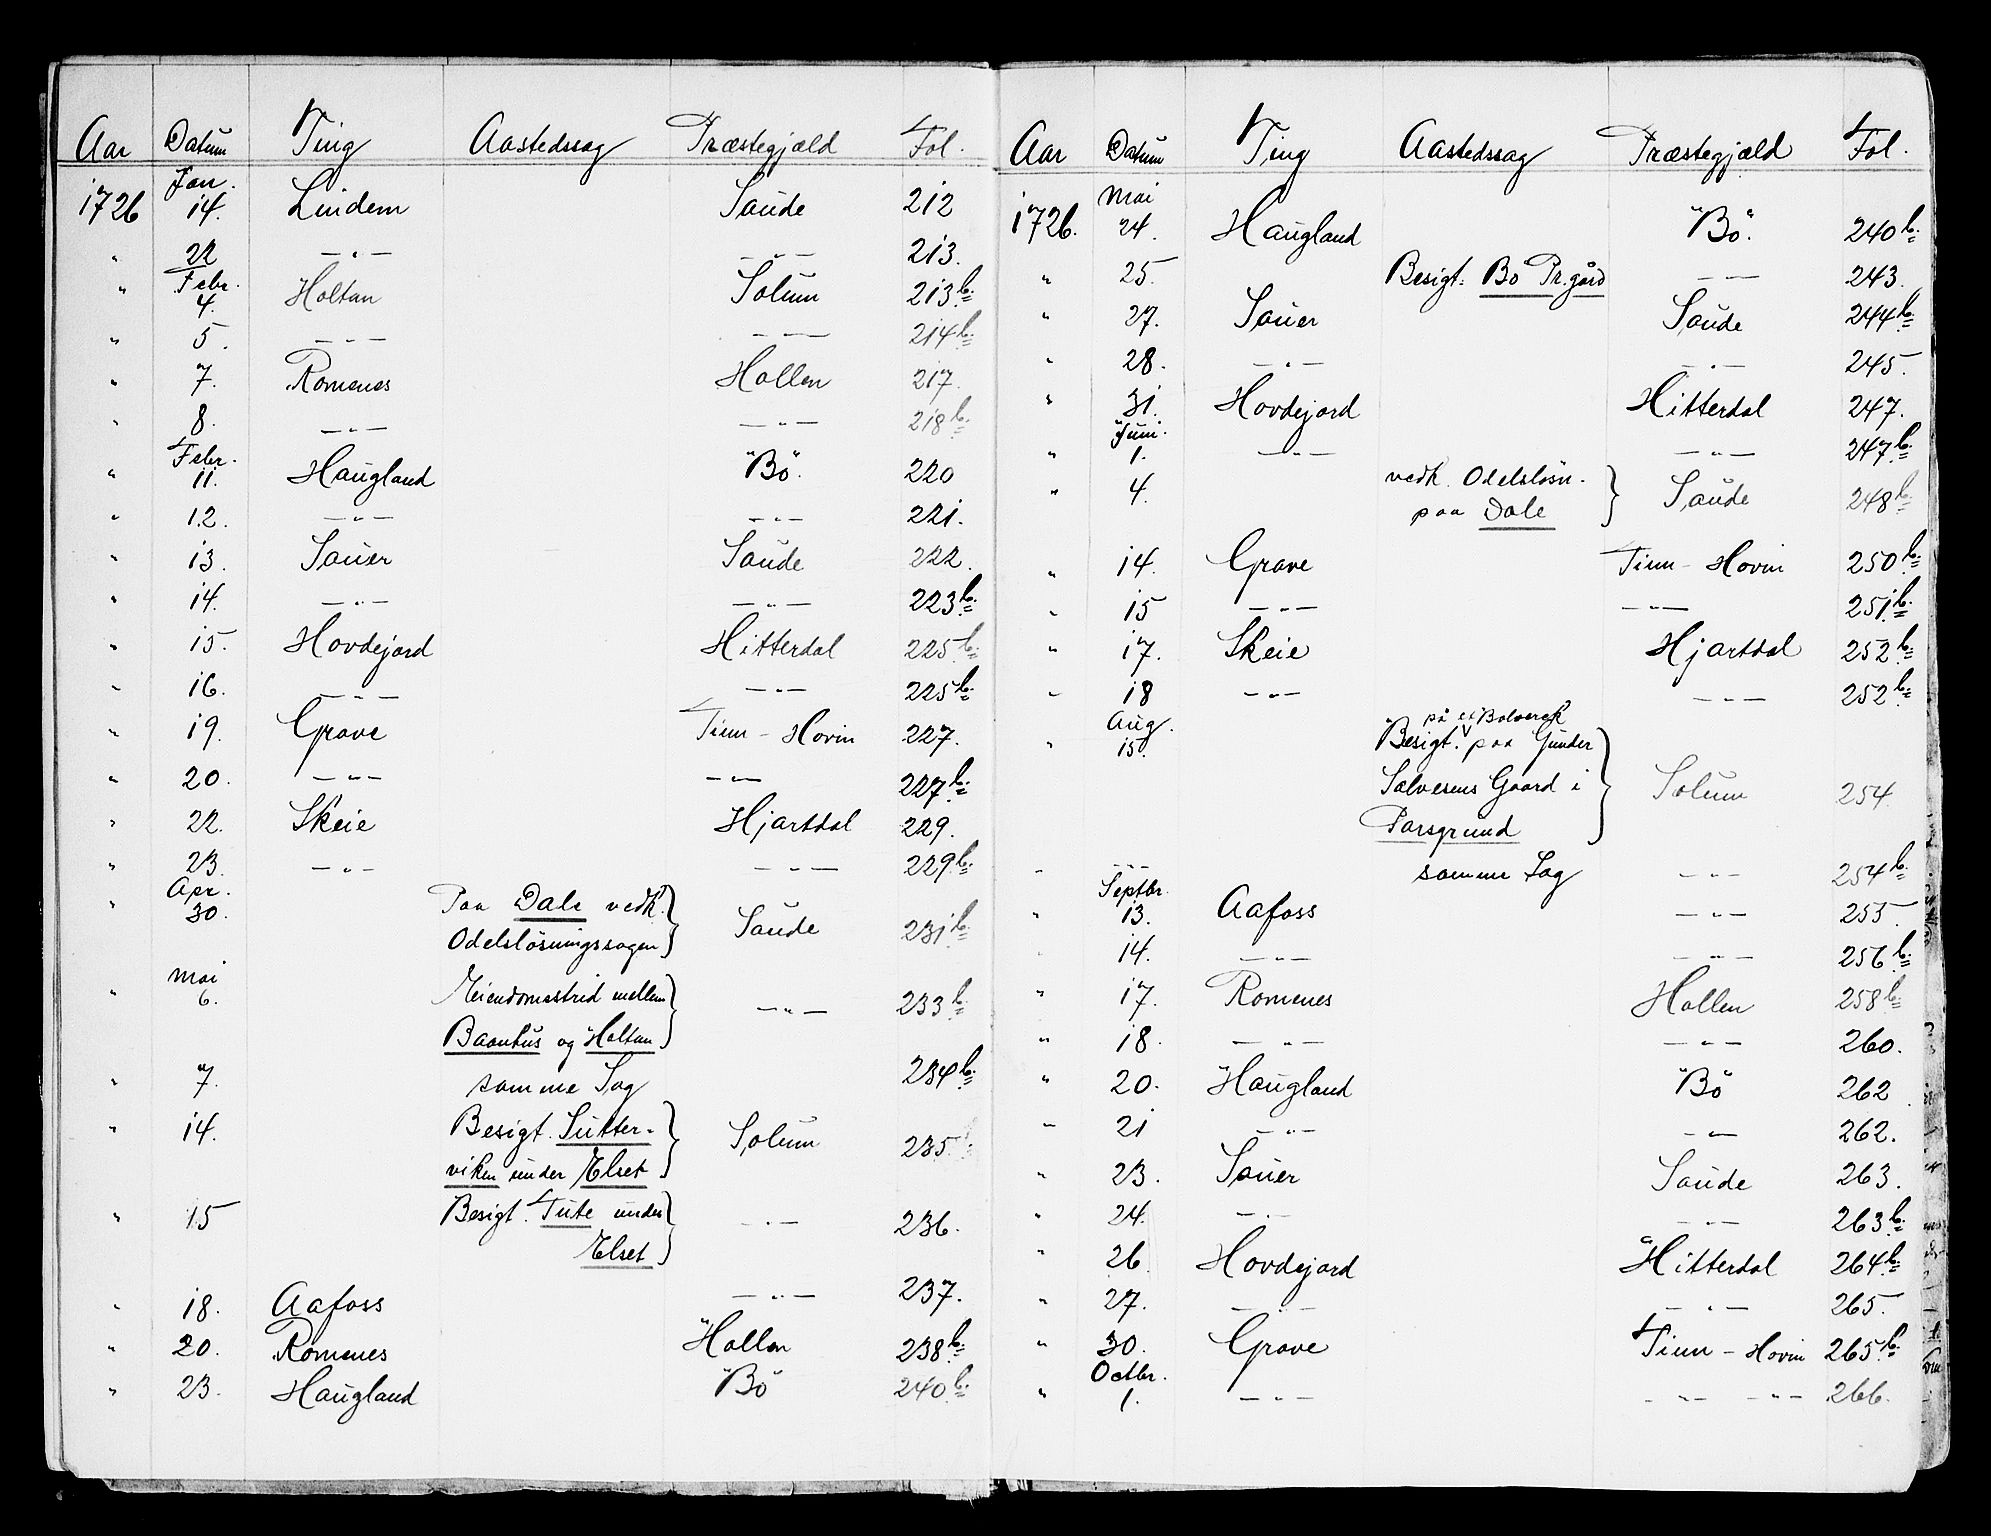 Aar Datum Ting Aastedssag Præstegjæld Fol.
Jan.
1726 14. Lindem Saude 212
" 22 — " — — " — 213.
Febr.
" 4. Holtan Solum 213 b.
" 5. — " — — — 214 b.
" 7. Romenes Hollen 217.
" 8. — " — — " — 218 b.
Febr.
" 11. Haugland Bö. 220
" 12. — " — — " — 221.
" 13. Sauer Saude 222.
" 14. — " — — " — 223 b.
" 15. Hovdejord Hitterdal 225 b.
" 16. — " — — " — 225 b.
" 19. Grave Tinn - Hovin 227.
" 20. — " — — " — 227 b.
" 22. Skeie Hjartdal 229.
" 23. — " — — " — 229 b.
Apr.
" 30. Paa Dale vedk. Saude 231 b.
Odelslösningssagen
Mai
" 6. Eiendomsstrid mellem — " — 233 b.
Baanhus og Holtan
" 7. samme Sag 234 b.
" 14. Besigt. Sutter- Solum 235
viken under Elset
" 15 Besigt. Tute under — " — 236.
Elset
" 18. Aafoss — " — 237.
" 20. Romenes Hollen 238 b.
" 23. Haugland Bö 240 b.
Aar Datum Ting Aastedssag Præstegjæld Fol.
Mai
1726. 24. Haugland Bö. 240 b.
" 25. Besigt: Bo Pr.gård — — 243.
" 27. Sauer Saude 244 b.
" 28. — " — — " — 245.
" 31. Hovdejord Hitterdal 247.
Juni.
" 1. — " — — " — 247 b.
" 4. vedk. Odelslösn. Saude 248 b.
paa Dale
" 14. Grave Tinn - Hovin 250 b.
" 15 — " — — " — 251 b.
" 17. Skeie Hjartdal 252 b.
" 18 — " — — — — 252 b.
Aug. på et Bolverck
" 15. Besigt. paa Gunder
Salvesens Gaard i Solum 254
Porsgrund
" — — — samme Sag — " — 254 b.
Septbr.
" 13. Aafoss — " — 255.
" 14. — " — — " — 256 b.
" 17. Romenes Hollen 258 b.
" 18. — " — — " — 260.
" 20. Haugland Bö 262
" 21 — " — — " — 262.
" 23. Sauer Saude 263.
" 24. — " — — " — 263 b.
" 26 Hovdejord Hitterdal 264 b.
" 27. — " — — " — 265.
" 30. Grave Tinn - Hovin 265 b.
Octbr.
" 1. — " — — " — — " — 266.